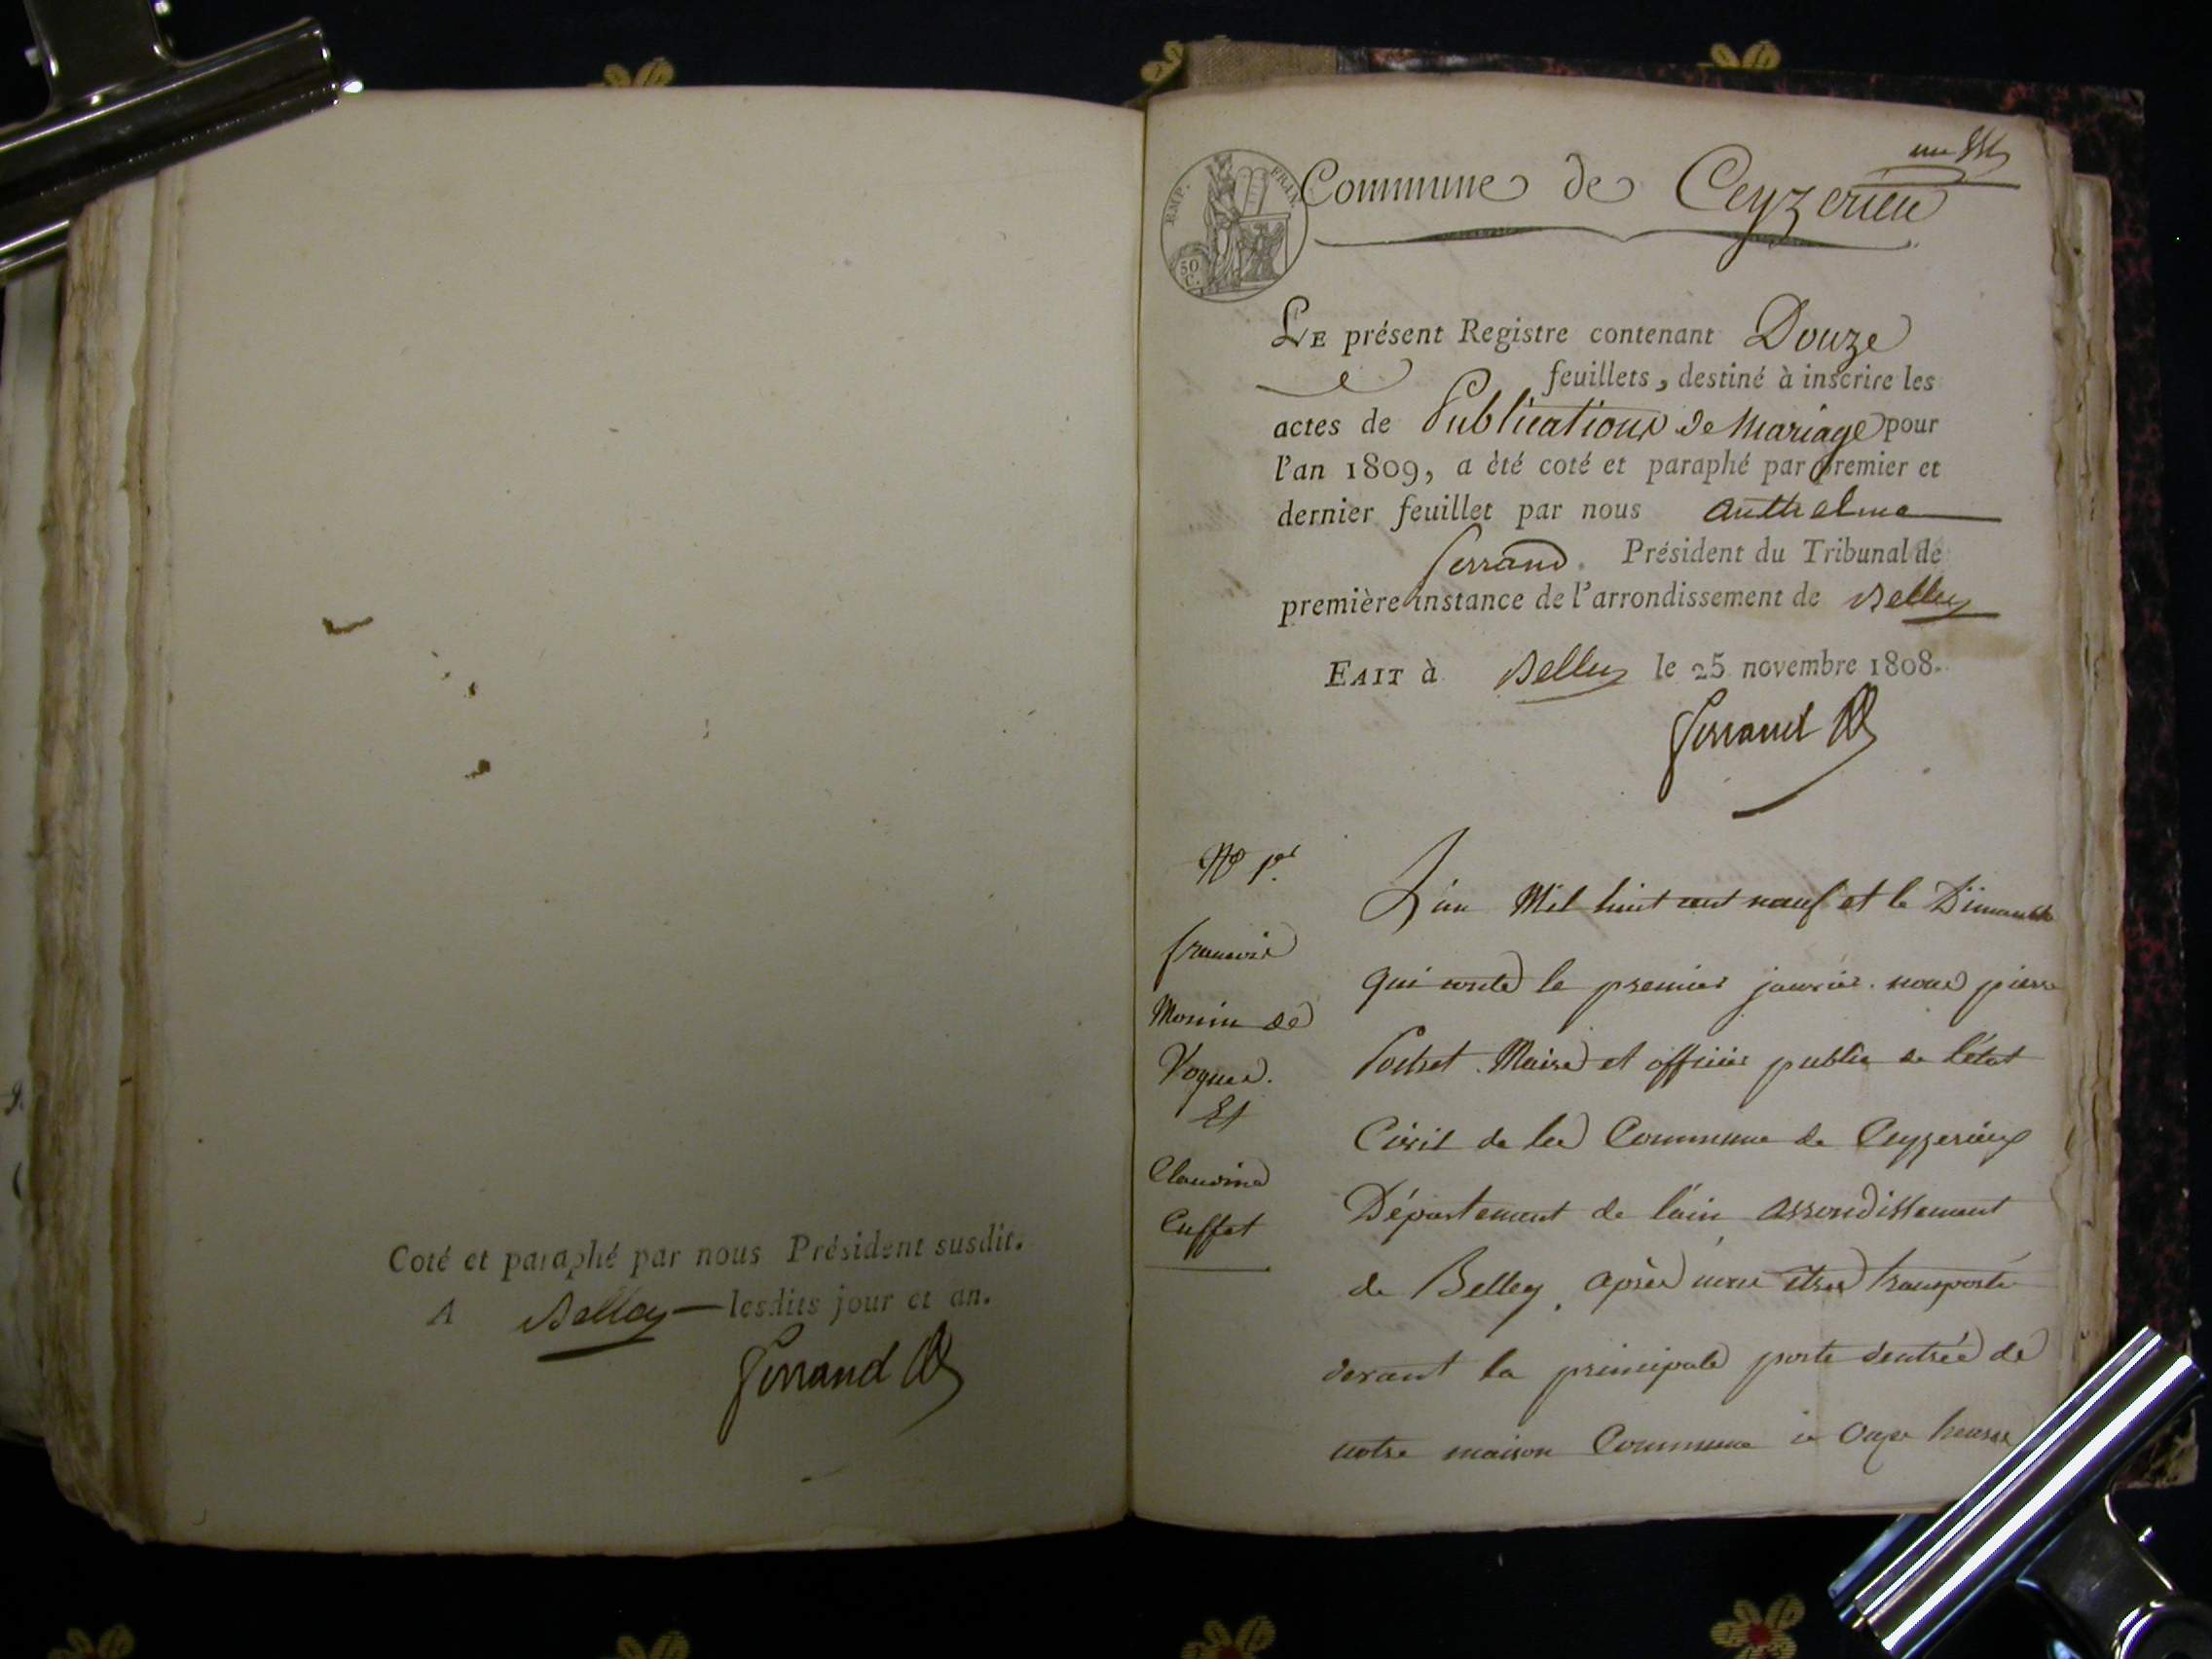 Coté et paraphé par nous Président susdit.
A Belley lesdits jour et an.
Ferrand
EMP. FRAN.
50
C.
un
Commune de Ceyzerieu
LE présent Registre contenant Douze
feuillets, destiné à inscrire les
actes de Publications de Mariage pour
l'an 1809, a èté coté et paraphé par premier et
dernier feuillet par nous Anthelme
Ferrand. Président du Tribunal de
première instance de l'arrondissement de Belley
FAIT à Belley le 25 novembre 1808.
Ferrand
N° 1er
francois
Monin de
Vognes.
Et
Claudine
Cuffet
L'an Mil huit cent neuf et le Dimanche
qui conte le premier janvier. nous pierre
Pochet. Maire et officier public de l'état
Civil de la Commune de Ceyzerieux
Département de l'ain arrondissement
de Belley, après nous etres transporté
devant la principale porte dentrée de
notre maison Commune à Onze heures